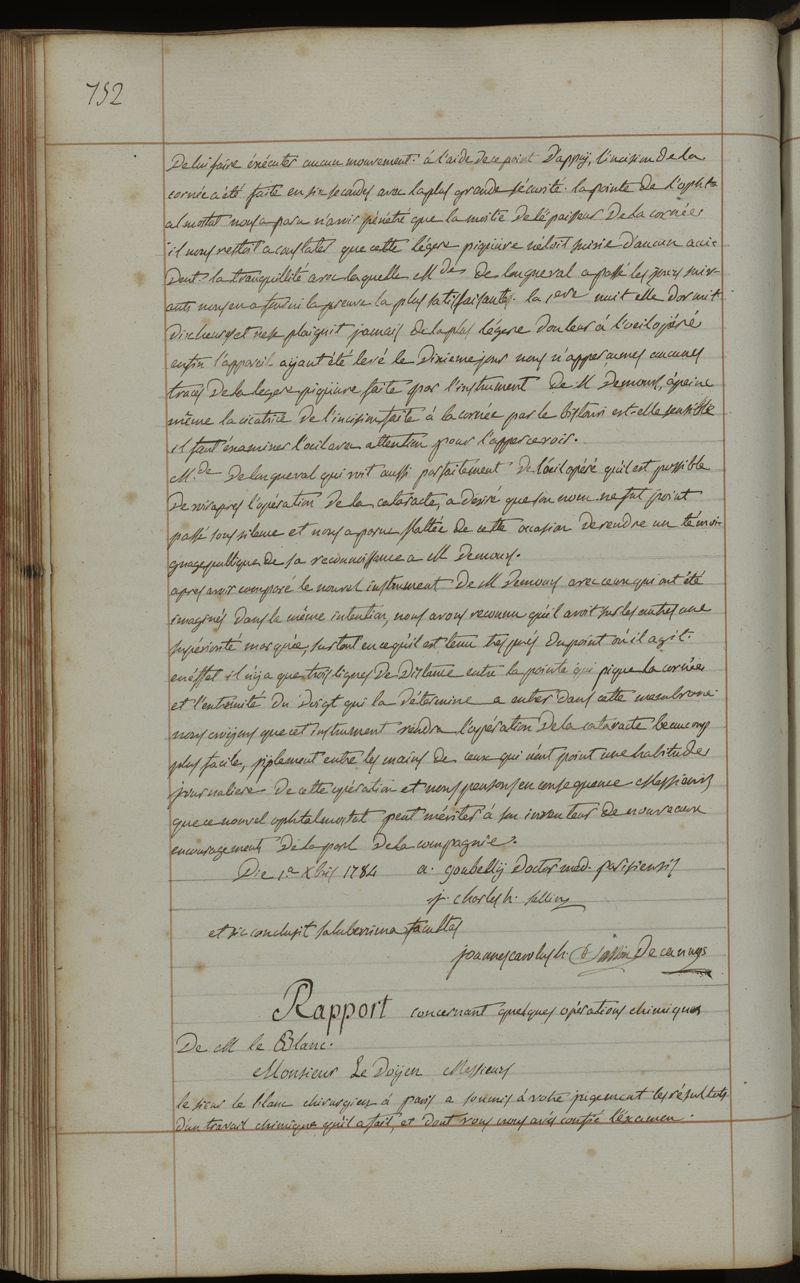 752
De lui faire éxécuter aucun mouvement. à l'aide de ce point D'appuy, l'incision de la
cornée a été faite en six secondes avec la plus grande sécurité. la pointe de l'opht-
almostat nous a paru n'avoir pénétré que la moitié de l'épaisseur de la cornée
il nous restoit a constater que cette légere piquure n'étoit suivie d'aucun acci-
Dent. la tranquillité avec laquelle M.de De longueval a passé les jours suiv-
ants nous en a fourni la preuve la plus satisfaisante. la 1ere nuit elle dormit
Dix heures et ne se plaignit jamais de la plus légere douleur à l'oeil opéré
enfin l'appareil ayant été levé le dixieme jour nous n'apperçumes aucunes
traces de la legere piquure faite par l'instrument De M Demours, à peine
même la cicatrice De l'incision faite à la cornée par le bistouri est-elle sensible
il faut éxaminer l'oeil avec attention pour l'appercevoir.
M.de De longueval qui voit aussi parfaitement De l'oeil opéré qu'il est possible
De voir apres l'opération De la cataracte, a desiré que son nom ne fut point
passé sous silence et nous a paru flattée de cette occasion de rendre un témoi-
gnage publique de sa reconnoissance a M Demours.
apres avoir comparé le nouvel instrument De M Demours avec ceux qui ont été
imaginés dans la même intention, nous avons reconnu qu'il avoit sur les autres une
supériorité marquée, surtout en ce qu'il est tenu tres près du point où il agit.
en effet il n'y a que trois lignes De Distance entre la pointe qui pique la cornée
et l'extremité du doigt qui la détermine a entrer dans cette membrane
nous croyons que cet instrument rendra l'opération De la cataracte beaucoup
plus facile, spécialement entre les mains de ceux qui n'ont point une habitude
journaliere De cette opération et nous pensons en consequence Messieurs
que ce nouvel ophtalmostat peut mériter à son inventeur de nouveaux
encouragements De la part De la compagnie.
Die 1a Xbris 1784 a. goubelly Doctor med. parisiensis
j. charles h. sallin
et sic conclusit saluberrima facultas
joannes carolus h. Sallin Decanus
Rapport concernant quelques opérations chimiques
De M le Blanc.
Monsieur Le Doyen Messieurs
le sieur le blanc chirurgien à paris a soumis à votre jugement les résultats
d'un travail chimique qu'il a fait, et dont vous nous avés confié l'éxamen.